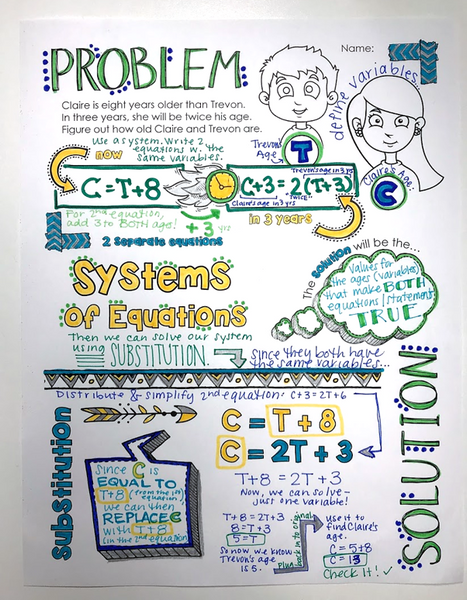 PROBLEM
Name:
define variables...
Claire is eight years older than Trevon.
In three years, she will be twice his age.
Figure out how old Claire and Trevon are.
Use a system. Write 2
equations w. the
same variables.
now
Trevon's
Age
T
Claire's Age
C
C=T+8
Trevon's age in 3 yrs
C+3=2(T+3)
Claire's age in 3 yrs
"TWICE"
For 2nd equation,
add 3 to BOTH age!
+3 yrs
in 3 years
2 separate equations
The solution will be the...
values for
the ages (variables)
that make BOTH
equations/statements
TRUE
Systems
of Equations
Then we can solve our system
using SUBSTITUTION.
since they both have
the same variables...
Distribute & simplify 2nd equation: C+3=2T+6
Substitution
Since C is
EQUAL TO
T+8 (from the 1st
equation)
we can then
REPLACE C
with T+8
(in the 2nd equation)
C = T+8
C = 2T+3
T+8 = 2T+3
Now, we can solve-
just one variable!
T+8=2T+3
8=T+3
5=T
So now we know
Trevon's age
is 5.
Plug back in to original
Use it to
find Claire's
age.
C=5+8
C=13
Check it! ✓
SOLUTION